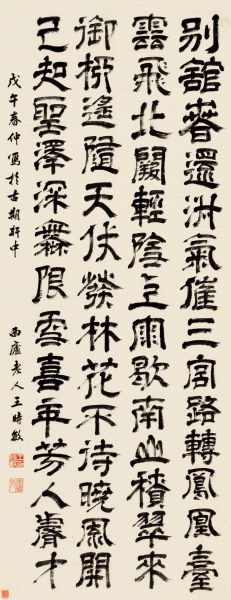 別館春還淑氣催三宮路轉鳳凰臺
雲飛北闕輕陰雨歇南山積翠來
御柳遙隨天仗發林花不待曉風開
已知聖澤深無限喜年芳入睿才
戊午春仲寫於古期軒中
西廬老人王時敏